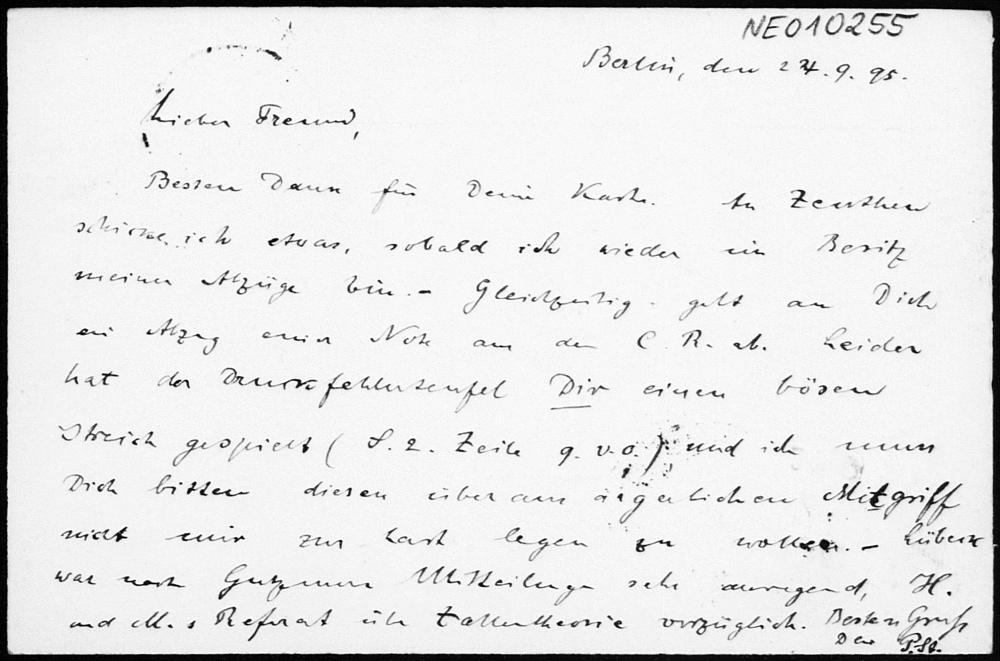 NE010255
Berlin, den 24. 9. 95.
Lieber Freund,
Besten Dank für Deine Karte. An Zeuthen
schicke ich etwas, sobald ich wieder im Besitz
meiner Abzüge bin. – Gleichzeitig geht an Dich
ein Abzug einer Note aus den C. R. ab. Leider
hat der Druckfehlerteufel Dir einen bösen
Streich gespielt (S. 2. Zeile 9. v. o.) und ich muss
Dich bitten diesen überaus ärgerlichen Mitgriff
nicht mir zur Last legen zu wollen. – Lübeck
war nach Gutzmers Mitteilungen sehr anregend, H.
und M.s Referat über Zahlentheorie vorzüglich. Besten Gruss
Dein P. St.